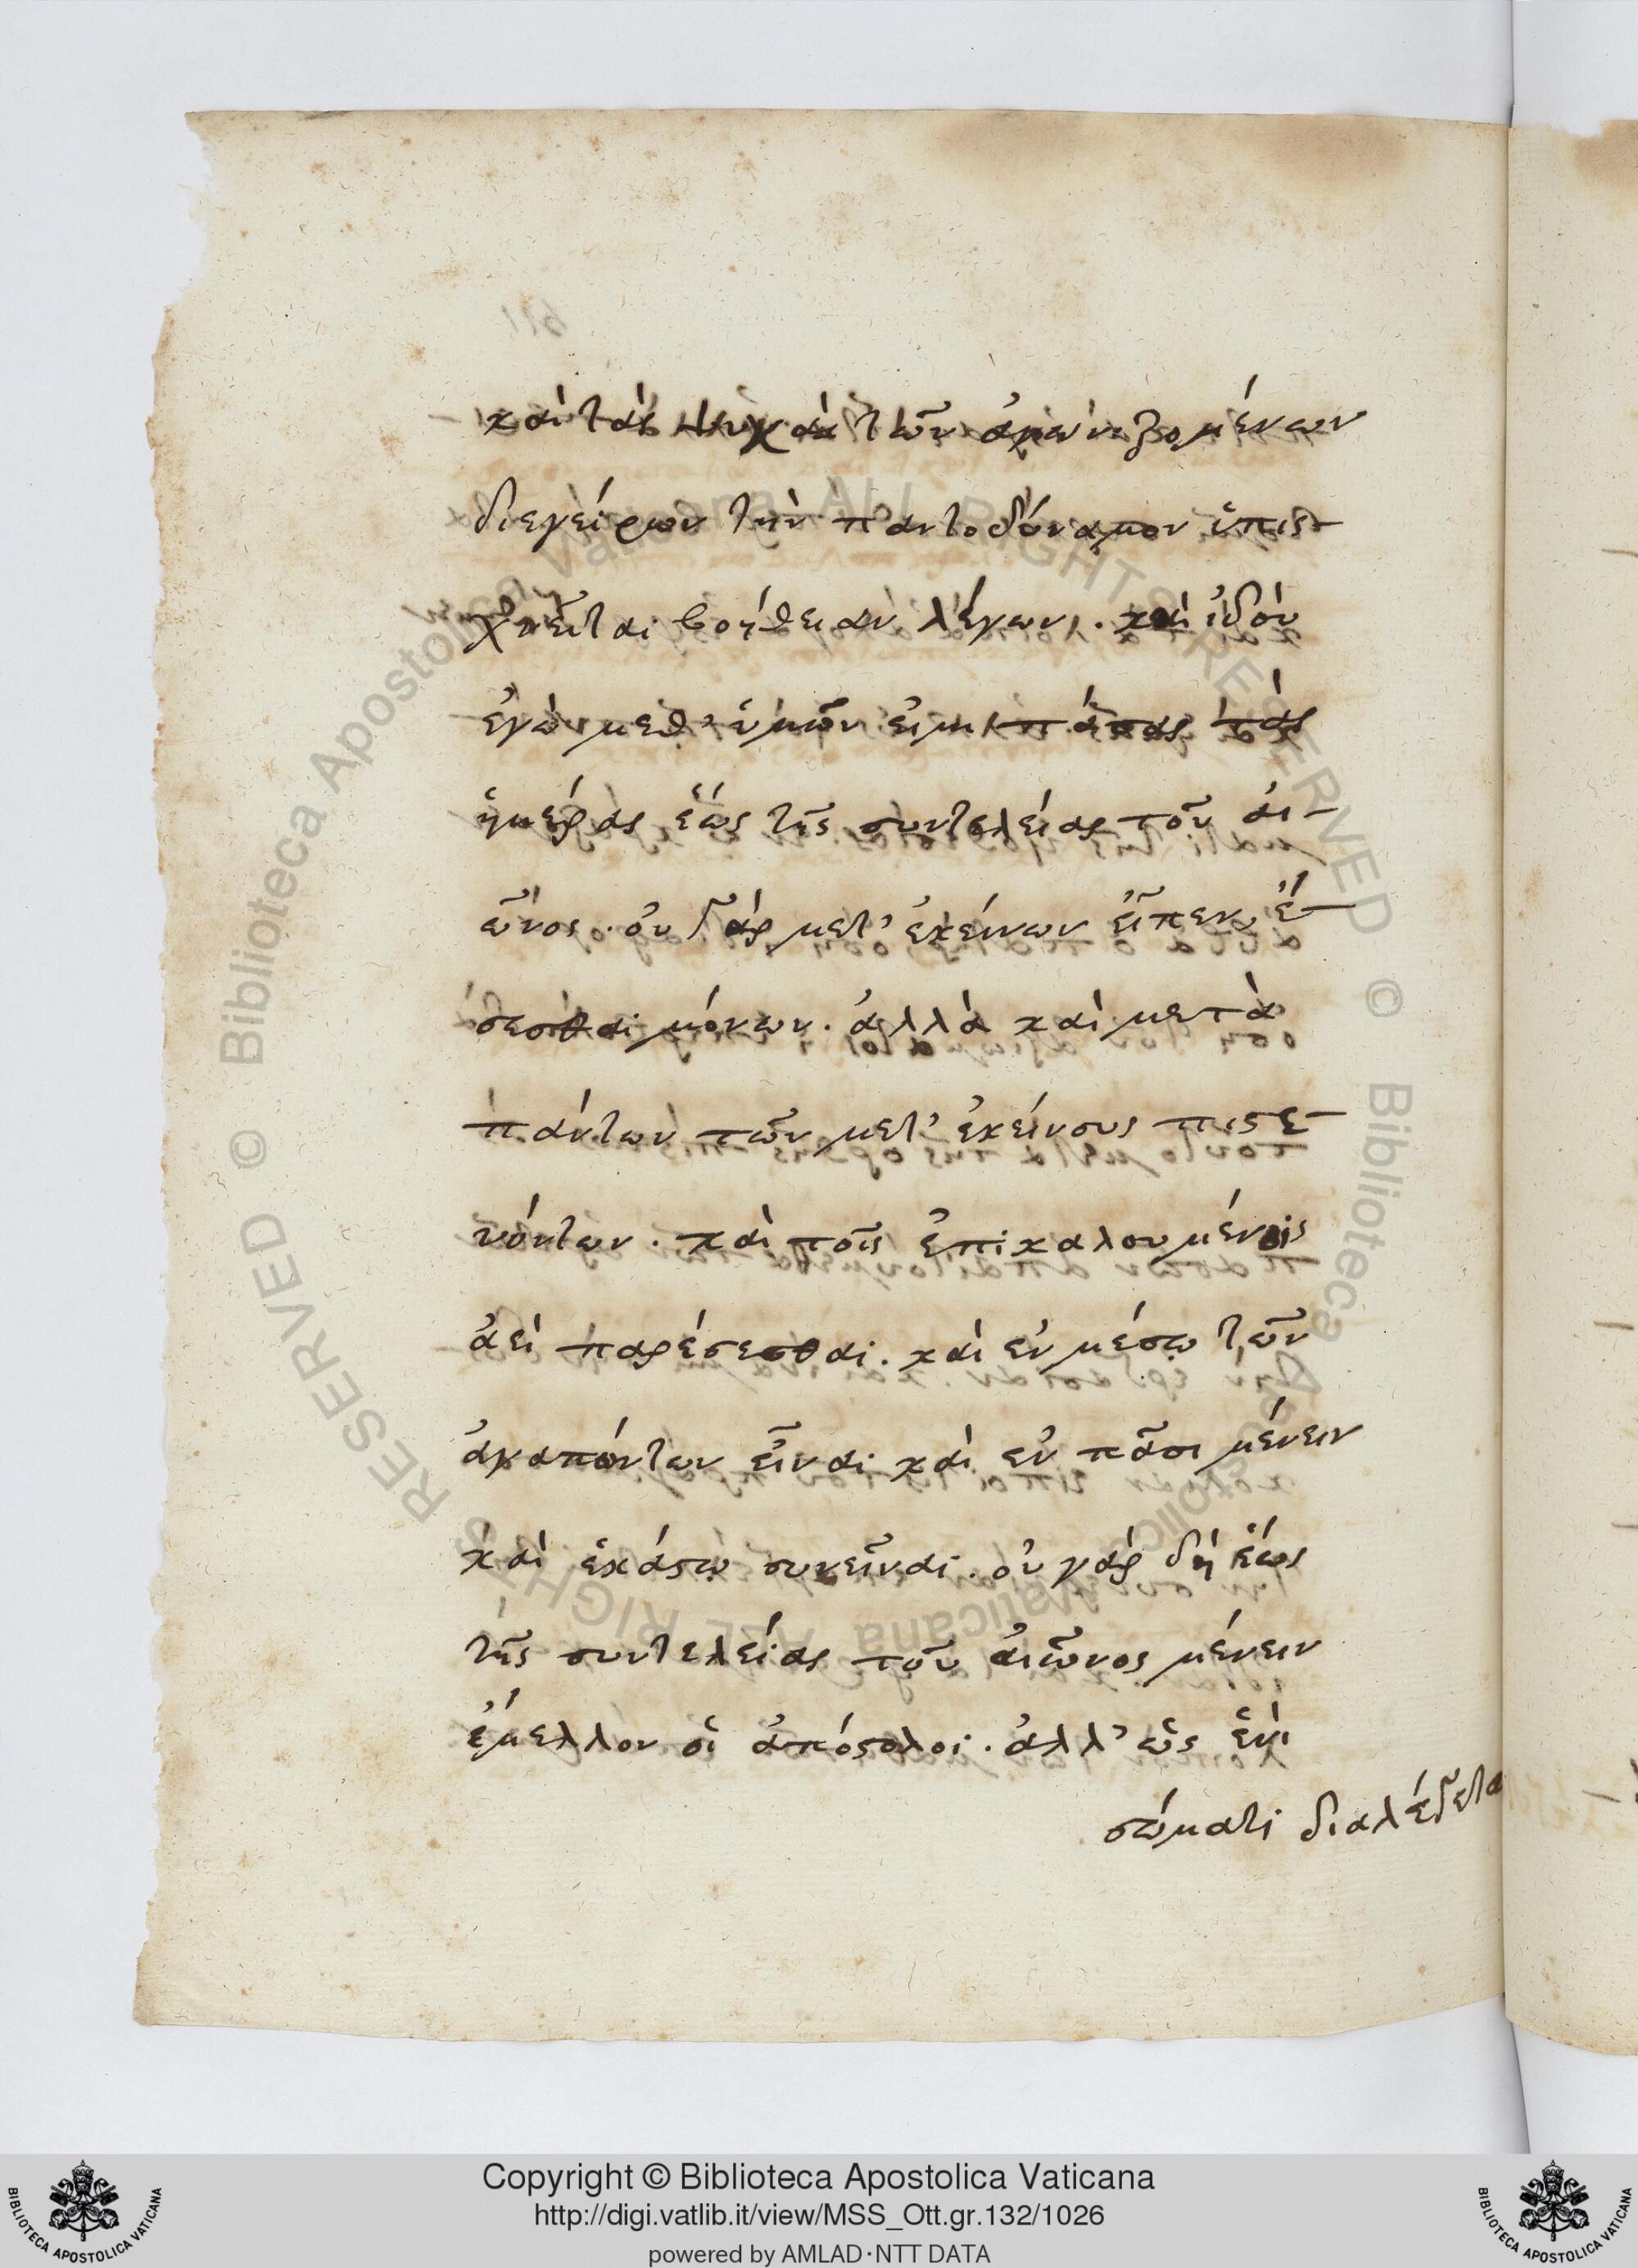 καὶ τὰς ψυχὰς τῶν ἀγωνιζομένων
διεγείρων τὴν παντοδύναμον ὑπισ-
χνεῖται βοήθειαν λέγων. καὶ ἰδοὺ
ἐγὼ μεθ' ὑμῶν εἰμι πάσας τὰς
ἡμέρας ἕως τῆς συντελείας τοῦ αἰ-
ῶνος. οὐ γὰρ μετ' ἐκείνων εἶπεν ἔ-
σεσθαι μόνων. ἀλλὰ καὶ μετὰ
πάντων τῶν μετ' ἐκείνους πιστε-
υόντων. καὶ τοῖς ἐπικαλουμένοις
ἀεὶ παρέσεσθαι. καὶ ἐν μέσῳ τῶν
ἀγαπώντων εἶναι καὶ ἐν πᾶσι μένειν
καὶ ἑκάστῳ συνεῖναι. οὐ γὰρ δὴ ἕως
τῆς συντελείας τοῦ αἰῶνος μένειν
ἔμελλον οἱ ἀπόστολοι. ἀλλ' ὡς ἑνὶ
σώματι διαλέγετα
RESERVED © Biblioteca Apostolica Vaticana ALL RIGHTS RESERVED © Biblioteca Apostolica Vaticana ALL RIGHTS
Copyright © Biblioteca Apostolica Vaticana
http://digi.vatlib.it/view/MSS_Ott.gr.132/1026
powered by AMLAD·NTT DATA
BIBLIOTECA APOSTOLICA VATICANA
BIBLIOTECA APOSTOLICA VATICANA